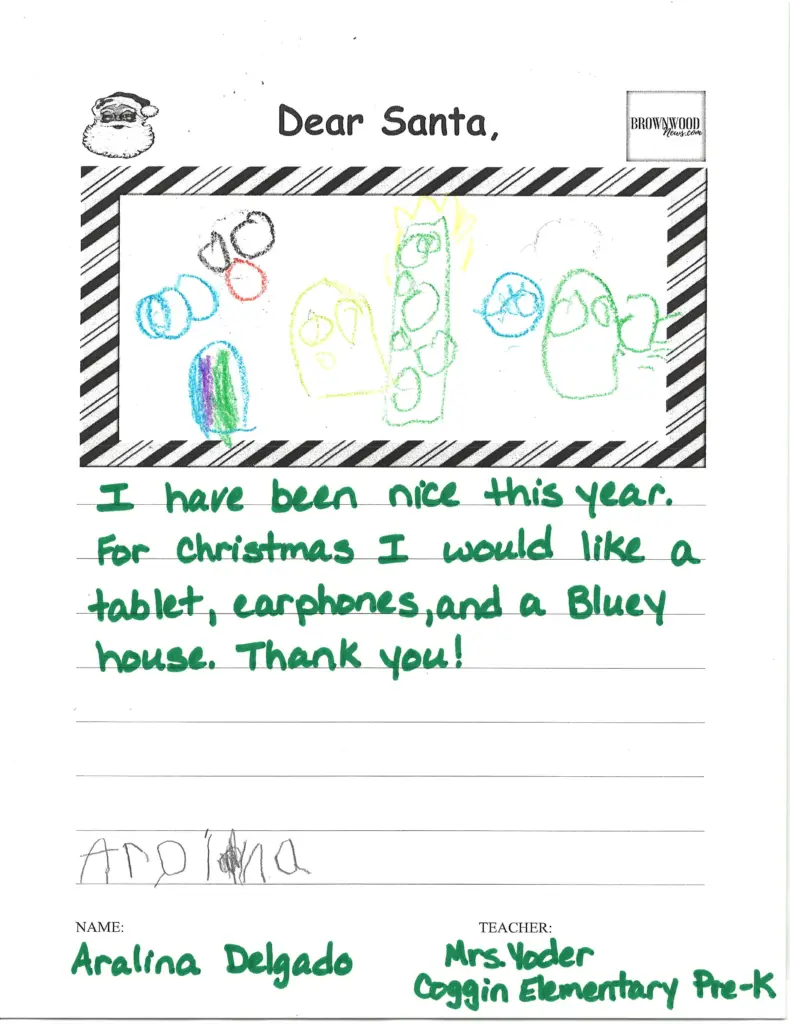 Dear Santa,
BROWNWOOD
News.com
I have been nice this year.
For Christmas I would like a
tablet, earphones, and a Bluey
house. Thank you!
Aralina
NAME:
TEACHER:
Aralina Delgado
Mrs. Yoder
Coggin Elementary Pre-K